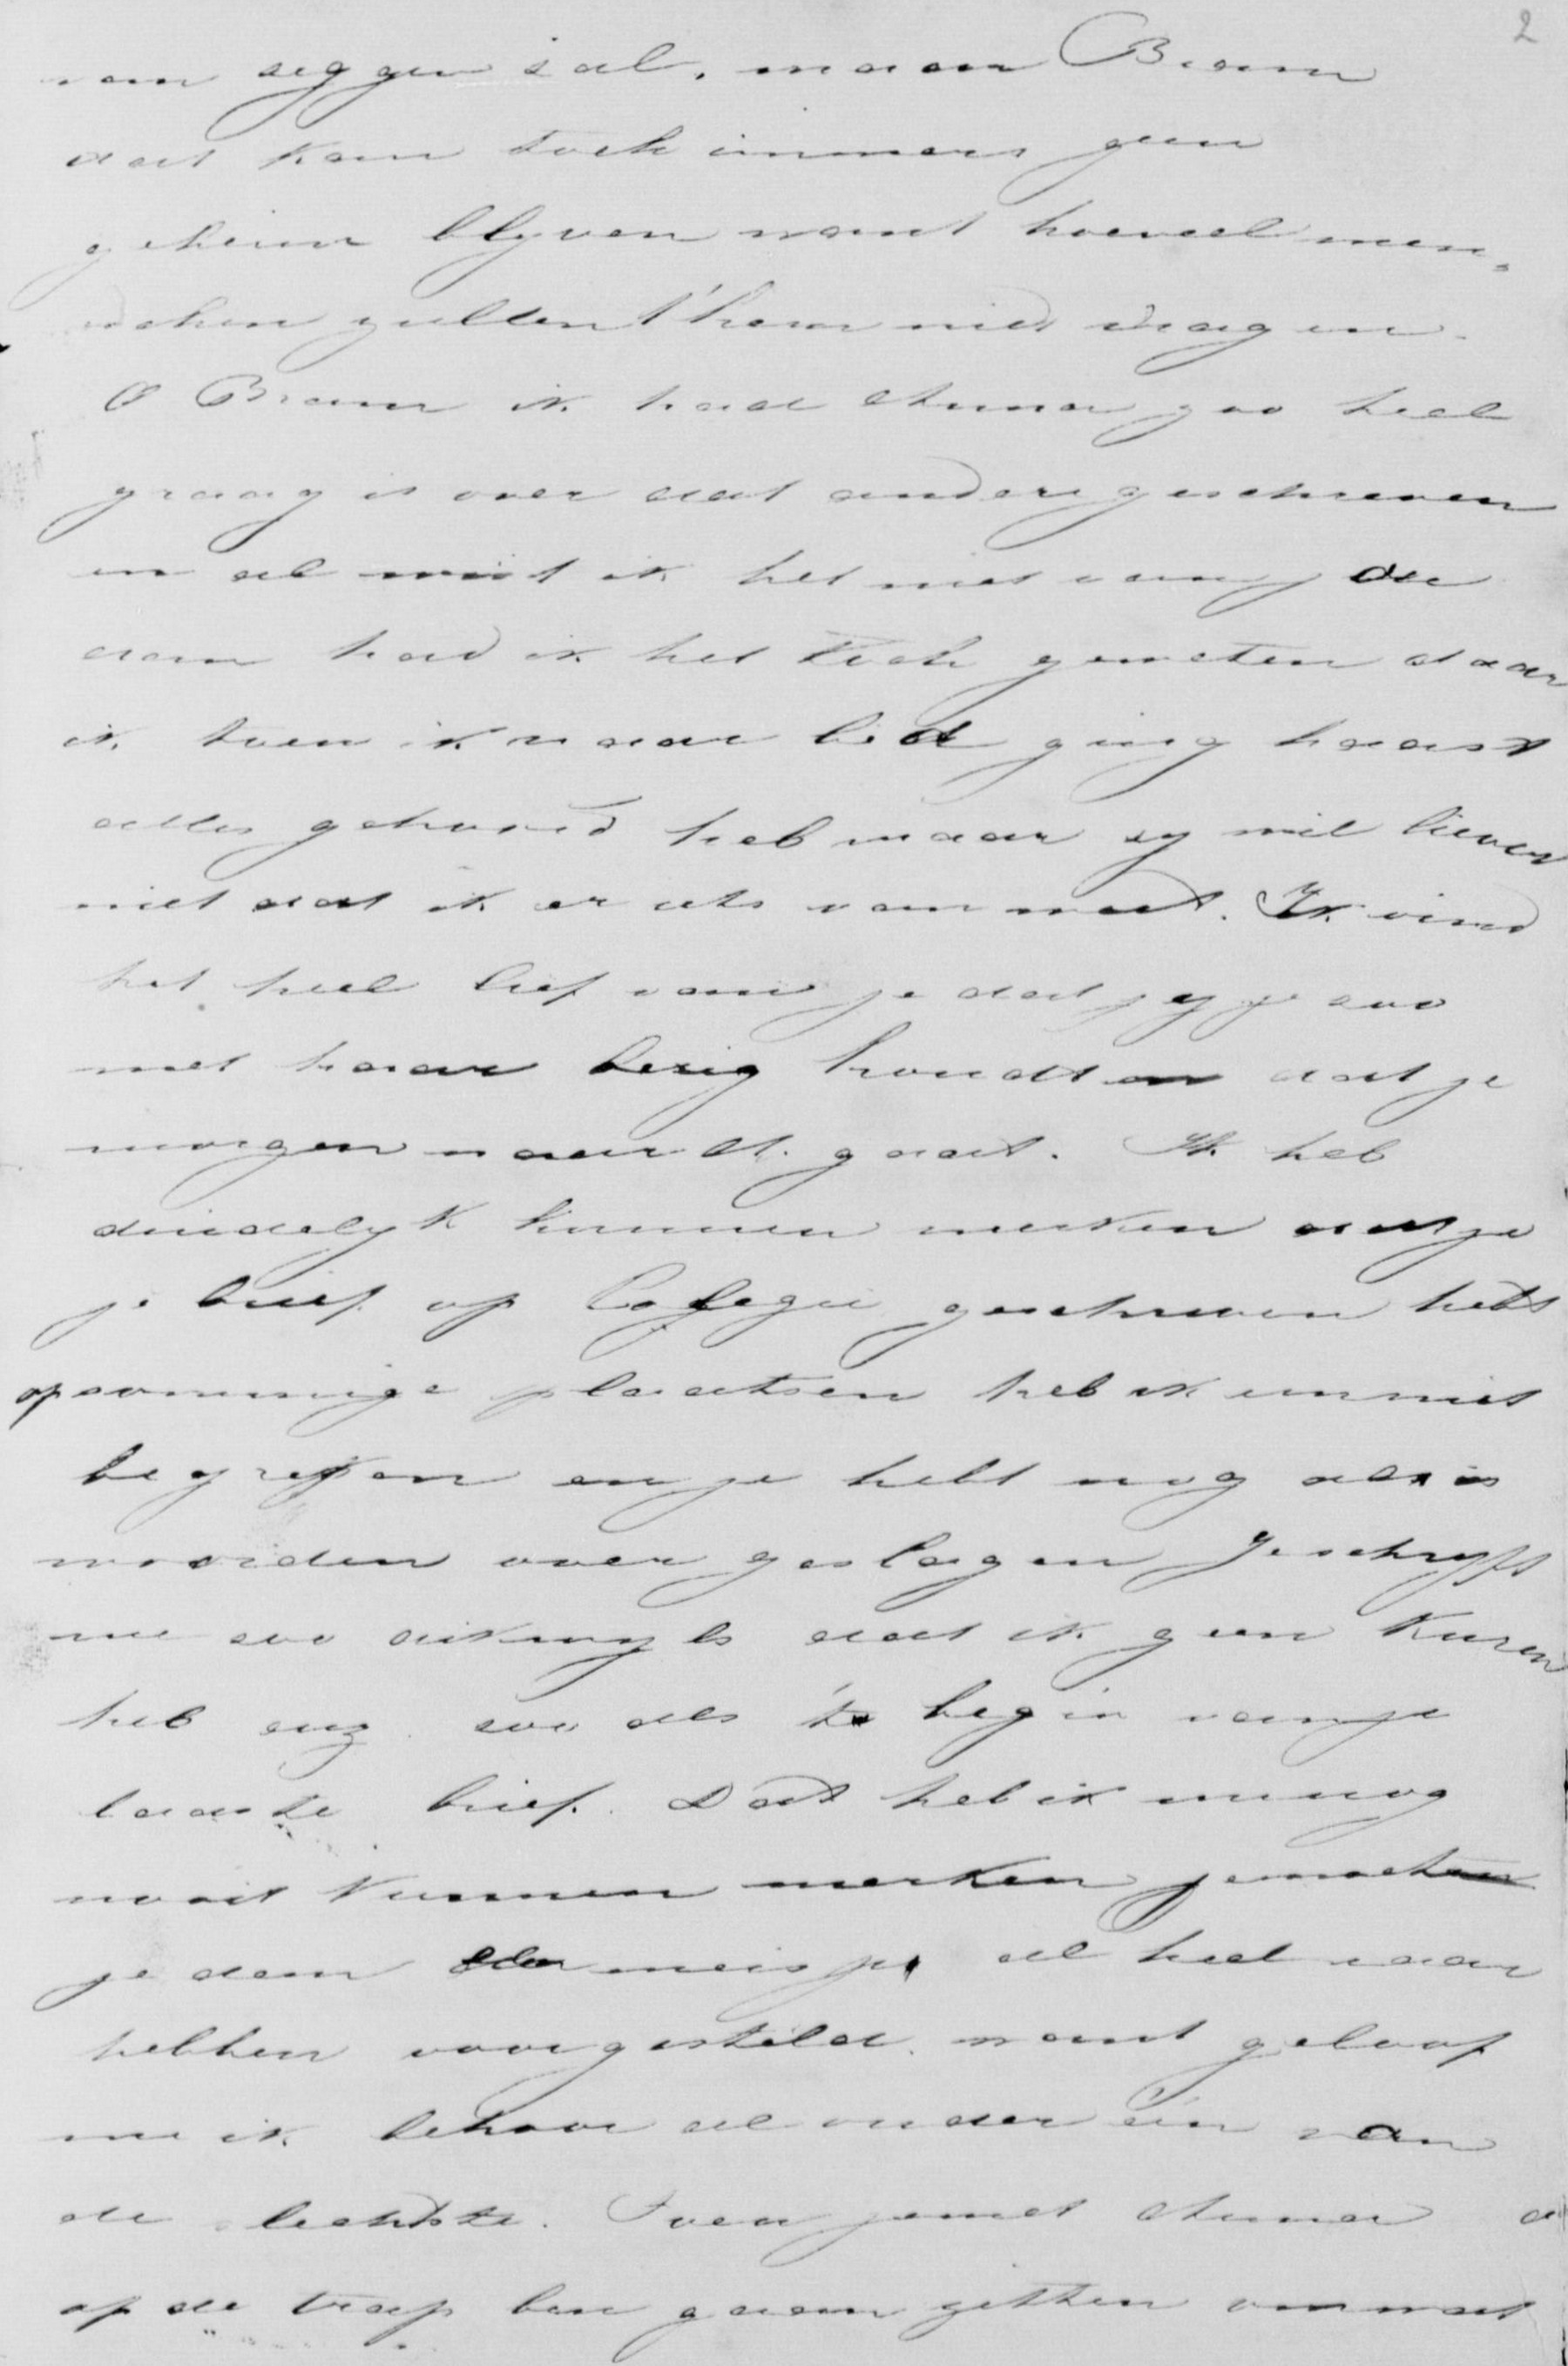 2
van seggen sal, maar Bram
dat kan toch immers geen
geheim blyven want hoeveel men,
schen zullen 't haar niet vragen.
O Bram ik had Anna zoo heel
graag is over dat andere geschreven
en al wist ik het niet van je
dan had ik het toch geweten daar
ik toen ik naar bed ging haast
alles gehoord heb maar sy wil liever
niet dat ik er iets van weet. Ik vind
het heel lief van je dat jy je soo
met haar besig houdt en dat je
morgen naar A. gaat. Ik heb
duidelyk kunnen merken dat je
je brief op Collegie geschreven hebt
op sommige plaatsen heb ik em niet
begrepen en je hebt nog al is
woorden over geslagen Je schryft
me soo dikwyls dat ik geen kuren
heb enz. soo als 't begin van je
laaste brief. Dat heb ik nu nog
nooit kunnen merken je moet
je dan meisje al heel naar
hebben voorgesteld want geloof
me ik behoor al onder één van
de slechtste. Toen je met Anna
op de trap ben gaan zitten om wat